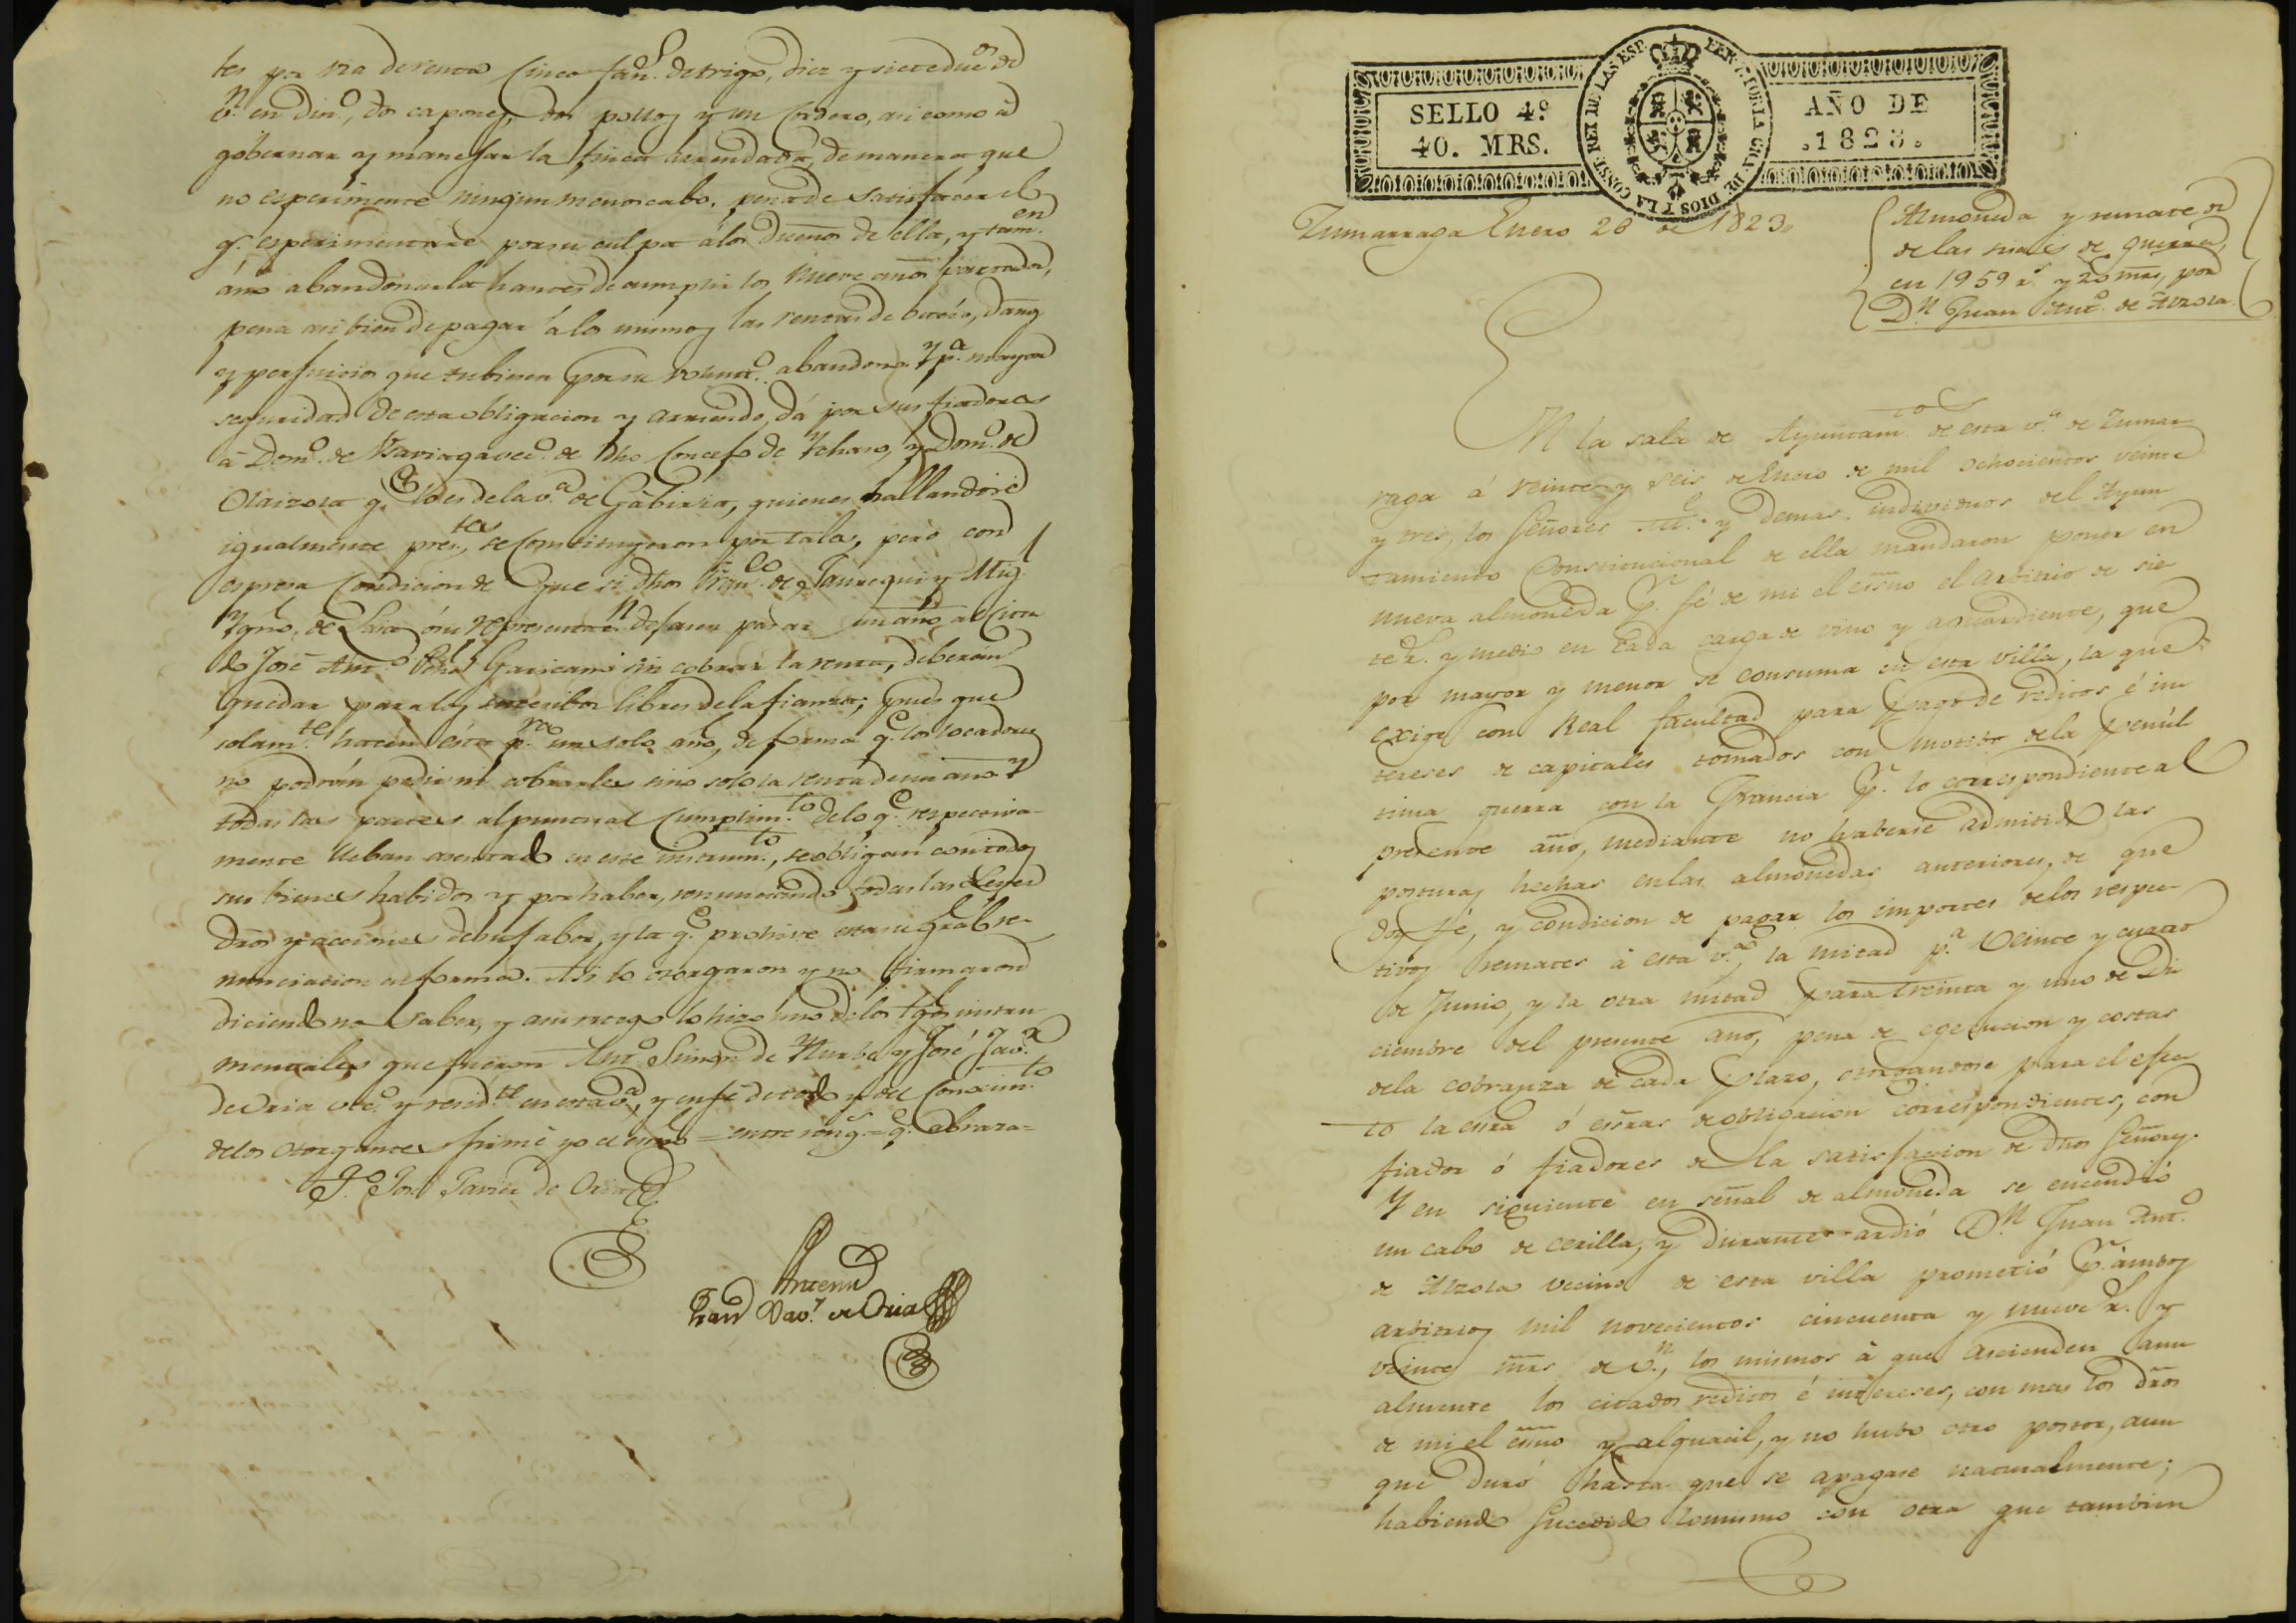 tes por via de renta cinco fan.s de trigo, diez y siete duc.s de
v.n en din.o, dos capones, dos pollos y un cordero, asi como à
gobernar y manejar la finca arrendada, de manera que
no esperimente ningun menoscabo, pena de satisfacer el
q.e esperimentare por su culpa á los Dueños de ella, y tam.en
á no abandonarla hantes de cumplir los nueve años pactados,
pena asi bien de pagar á los mismos las rentas de bacío, daños
y perjuicios que tubieren por su volunt.o abandono. Y p.a mayor
seguridad de esta obligacion y arriendo, dá por sus fiadores
à Dom.o de vec.o de dho Concejo de Ychaso, y Dom.o de
Olaizola q.e lo es de la v.a de Gabiria, quienes hallandose
igualmente pres.tes, se constituyeron por tales, pero con
espresa condicion de que si dhos Fran.co de Jauregui y Mig.l
Ygn.o de ó su represent.n dejasen pasar un año al citado
José Ant.o Garicano sin cobrar la renta, deberán
quedar para lo sucesibo libres de la fianza; pues que
solam.te hacen ésta p.ra un solo año, de forma q.e los locadores
no podrán pedir ni cobrarles sino solo la renta de un año. Y
todas las partes al puntual cumplim.to de lo q.e respectiva-
mente lleban asentado en este instrum.to, se obligan con todos
sus bienes habidos y por haber, renunciando todas las Leyes
dros y acciones de su fabor, y la q.e prohive esta su gral re-
nunciacion en forma. Asi lo otorgaron y no firmaron
diciendo no saber, y a su ruego lo hizo uno de los tgos instru
mentales que fueron Ant.o Simon de Yturbe y José Jav.r
de Oria vec.s y resid.tes en esta v.a, y en fé de todo y del conocim.to
de los otorgantes firmé yo el esno = entre reng.s = q.e abraza =
T.o José Javier de Oria
Antemi
Fran.co Xav.r de Oria
SELLO 4º
40. MRS.
FERN. 7 POR LA GRA. DE DIOS Y LA CONST. REI DE LAS ESP.
AÑO DE
.1823.
Zumarraga Enero 26 de 1823.
Almoneda y remate de
de las sisas de guerra,
en 1959 r.s y 20 mrs, por
D.n Juan Ant.o de Alzola.
En la sala de Ayuntam.to de esta v.a de Zumar
raga á veinte y seis de Enero de mil ochocientos veinte
y tres, los Señores Al.e y demas individuos del Ayun
tamiento Constitucional de ella mandaron poner en
nueva almoneda p.r fé de mi el esno el arbitrio de sie
te r.s y medio en cada carga de vino y aguardiente, que
por mayor y menor se consuma en esta villa, la que
exige con Real facultad para pago de reditos é in
tereses de capitales tomados con motivo de la penúl
tima guerra con la Francia p.r lo correspondiente al
presente año, mediante no haberse admitido las
posturas hechas en las almonedas anteriores, de que
doy fé, y condicion de pagar los importes de los respec-
tivos remates à esta v.a, la mitad p.a veinte y cuatro
de Junio, y la otra mitad para treinta y uno de Di
ciembre del presente año, pena de egecucion y costas
de la cobranza de cada plazo, otorgandose para el efec
to la esra ó esras de obligacion correspondientes, con
fiador ó fiadores de la satisfaccion de dhos Señores.
Y en siguiente en señal de almoneda se encendió
un cabo de cerilla, y durante ardió D.n Juan Ant.o
de Alzola vecino de esta villa prometió p.r ambos
arbitrios mil novecientos cincuenta y nueve r.s y
veinte mrs de v.n, los mismos à que ascienden anu
almente los citados reditos é intereses, con mas los dros
de mi el esno y alguacil, y no hubo otro postor, aun
que duró hasta que se apagase naturalmente;
habiendo sucedido lo mismo con otra que tambien